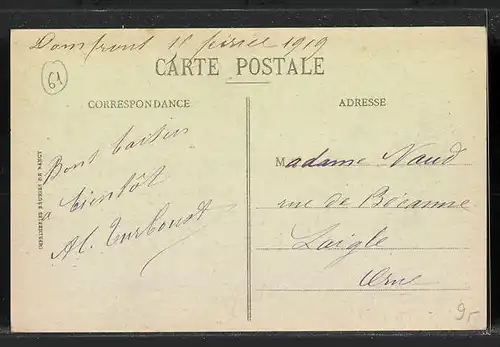 Domfront 1r février 1919
61
CARTE POSTALE
CORRESPONDANCE
ADRESSE
IMPRIMERIES RÉUNIES DE NANCY
Bons
à bientôt
Al. Turboust
Madame Naud
rue de Bécanne
Laigle
Orne
9